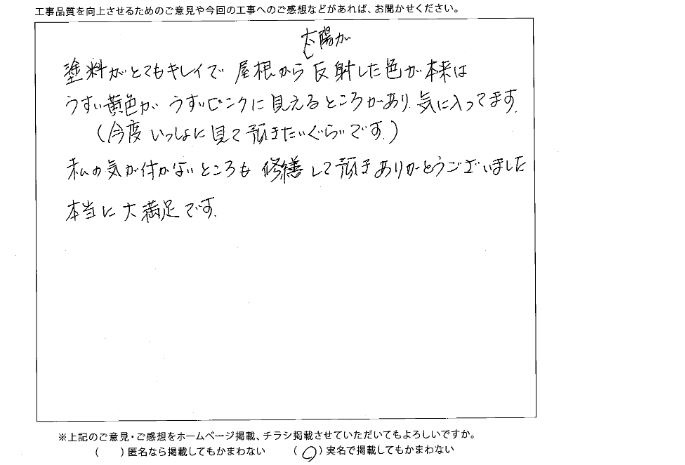 工事品質を向上させるためのご意見や今回の工事へのご感想などがあれば、お聞かせください。
太陽が
塗料がとてもキレイで 屋根から反射した色が本来は
うすい黄色が うすいピンクに見えるところがあり、気に入ってます。
(今度いっしょに見て頂きたいぐらいです。)
私の気が付かないところも 修繕して頂きありがとうございました
本当に大満足です。
※上記のご意見・ご感想をホームページ掲載、チラシ掲載させていただいてもよろしいですか。
( )匿名なら掲載してもかまわない (○)実名で掲載してもかまわない